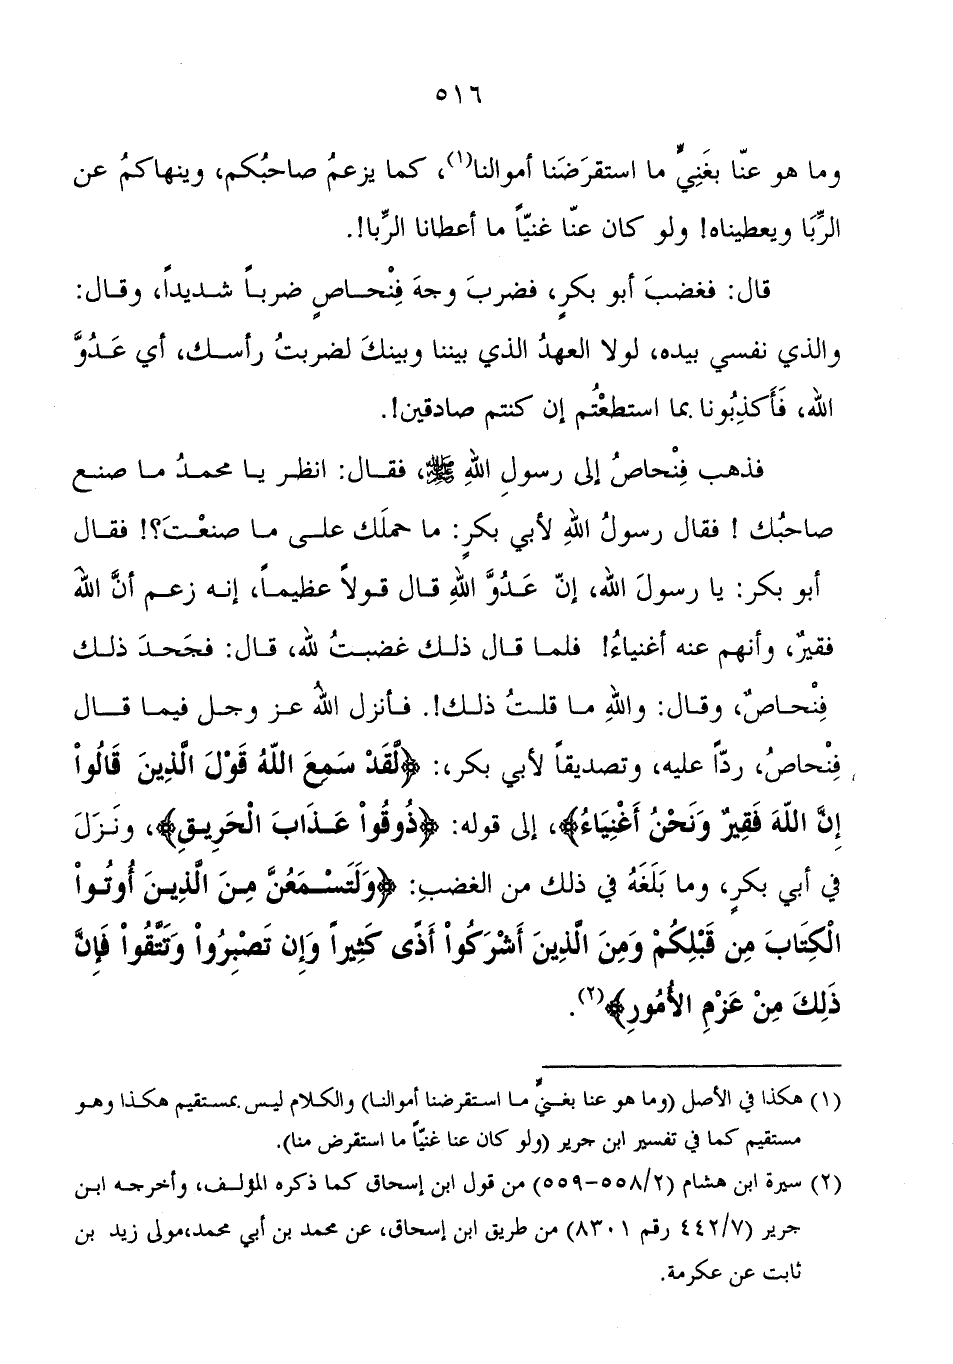 ٥١٦
وما هو عنّا بغَنِيٍّ ما استقرَضَنا أموالنا(١)، كما يزعمُ صاحبُكم، وينهاكمُ عن
الرِّبَا ويعطيناه! ولو كان عنّا غنيّاً ما أعطانا الرِّبا!.
قال: فغضبَ أبو بكرٍ، فضربَ وجهَ فِنْحـاصٍ ضربـاً شـديداً، وقـال:
والذي نفسي بيده، لولا العهدُ الذي بيننا وبينكَ لضربتُ رأسـك، أي عَـدُوَّ
الله، فَأَكذِبُونا بما استطعْتُم إن كنتم صادقين!.
فذهب فِنْحاصُ إلى رسولِ اللهِ ﷺ، فقـال: انظـر يـا محمـدُ مـا صنـع
صاحبُك ! فقال رسولُ اللهِ لأبي بكرٍ: ما حملَك علـى مـا صنعْـتَ؟! فقـال
أبو بكر: يا رسولَ الله، إنّ عَـدُوَّ اللهِ قـال قـولاً عظيمـاً، إنـه زعـم أنَّ اللهَ
فقيرٌ، وأنهم عنه أغنياءُ! فلمـا قـال ذلـك غضبـتُ لله، قـال: فجَحـدَ ذلـك
فِنْحـاصٌ، وقـال: واللهِ مـا قلـتُ ذلـك!. فـأنزل اللهُ عـز وجـل فيمـا قـال
فِنْحاصُ، ردّاً عليه، وتصديقاً لأبي بكر،: ﴿لَّقَدْ سَمِعَ اللَّهُ قَوْلَ الَّذِينَ قَالُواْ
إِنَّ اللَّهَ فَقِيرٌ وَنَحْنُ أَغْنِيَاءُ﴾، إلى قوله: ﴿ذُوقُواْ عَـذَابَ الْحَرِيـقِ﴾، ونَـزَلَ
في أبي بكرٍ، وما بَلَغَهُ في ذلك من الغضبِ: ﴿وَلَتَسْـمَعُنَّ مِـنَ الَّذِيـنَ أُوتُـواْ
الْكِتَابَ مِن قَبْلِكُمْ وَمِنَ الَّذِينَ أَشْرَكُواْ أَذًى كَثِيراً وَإِن تَصْبِرُواْ وَتَتَّقُواْ فَإِنَّ
ذَلِكَ مِنْ عَزْمِ الأُمُورِ﴾(٢).
(١) هكذا في الأصل (وما هو عنا بغنيٍّ مـا اسـتقرضنا أموالنـا) والكـلام ليـس بمسـتقيم هكـذا وهـو
مستقيم كما في تفسير ابن جرير (ولو كان عنا غنيّاً ما استقرض منا).
(٢) سيرة ابن هشام (٥٥٨/٢-٥٥٩) من قول ابن إسحاق كما ذكره المؤلـف، وأخرجـه ابـن
جرير (٤٤٢/٧ رقم ٨٣٠١) من طريق ابن إسحاق، عن محمد بن أبي محمد،مولى زيد بن
ثابت عن عكرمة.